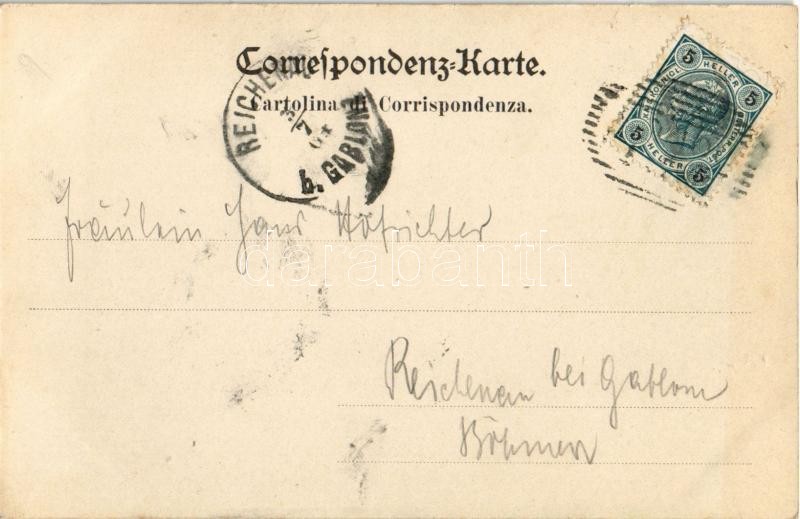 Correspondenz-Karte.
Cartolina di Corrispondenza.
REICHENAU
3/7 04
b. GABLONZ
5 HELLER 5
5 HELLER 5
Fräulein Hofrichter
darabanth
Reichenau bei Gablonz
Böhmen